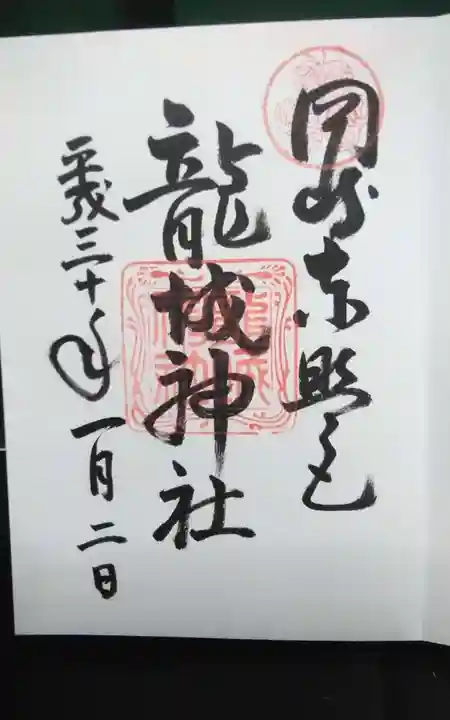 岡崎東照宮
龍城神社
平成三十年一月二日